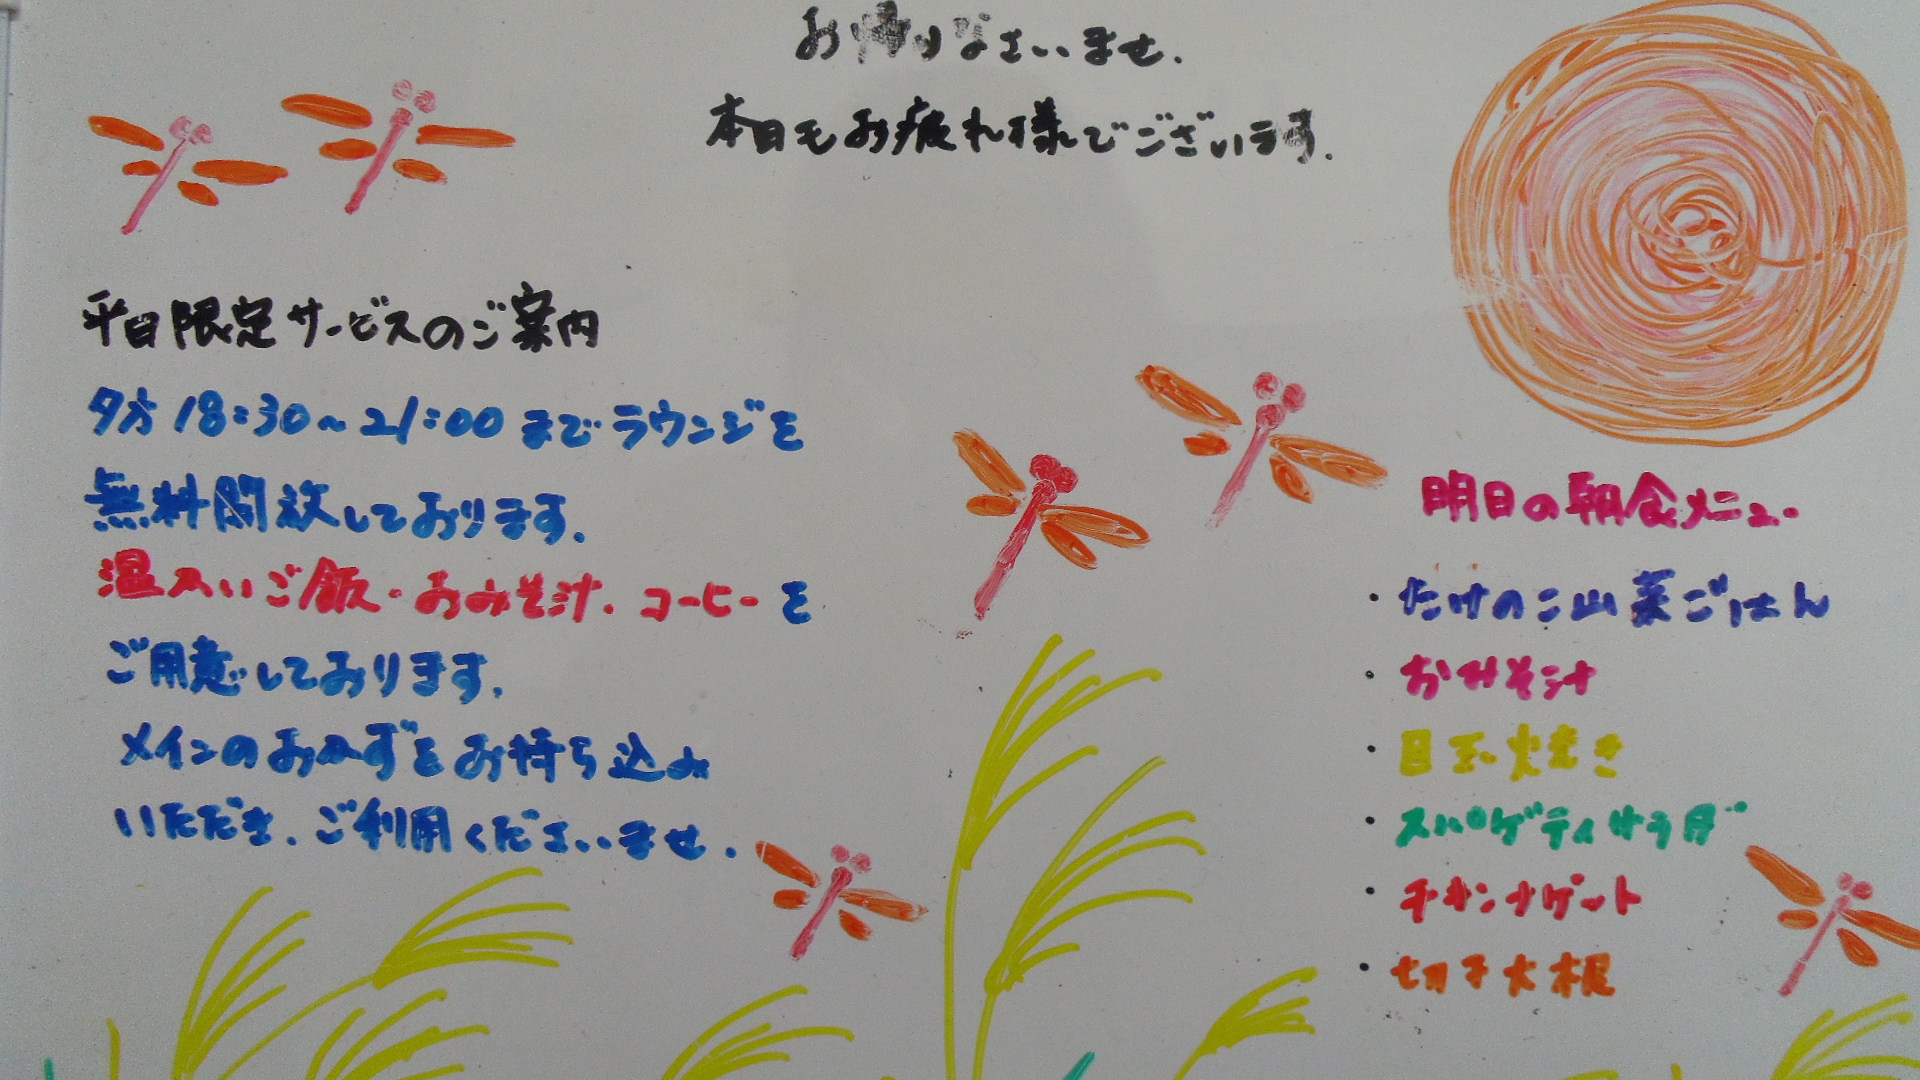 お帰りなさいませ.
本日もお疲れ様でございます.
平日限定サービスのご案内
夕方18:30~21:00までラウンジを
無料開放しております.
温かいご飯・おみそ汁.コーヒーを
ご用意しております.
メインのおかずをお持ち込み
いただき.ご利用くださいませ.
明日の朝食メニュー
・たけのこ山菜ごはん
・おみそ汁
・目玉焼き
・スパゲティサラダ
・チキンナゲット
・切干大根